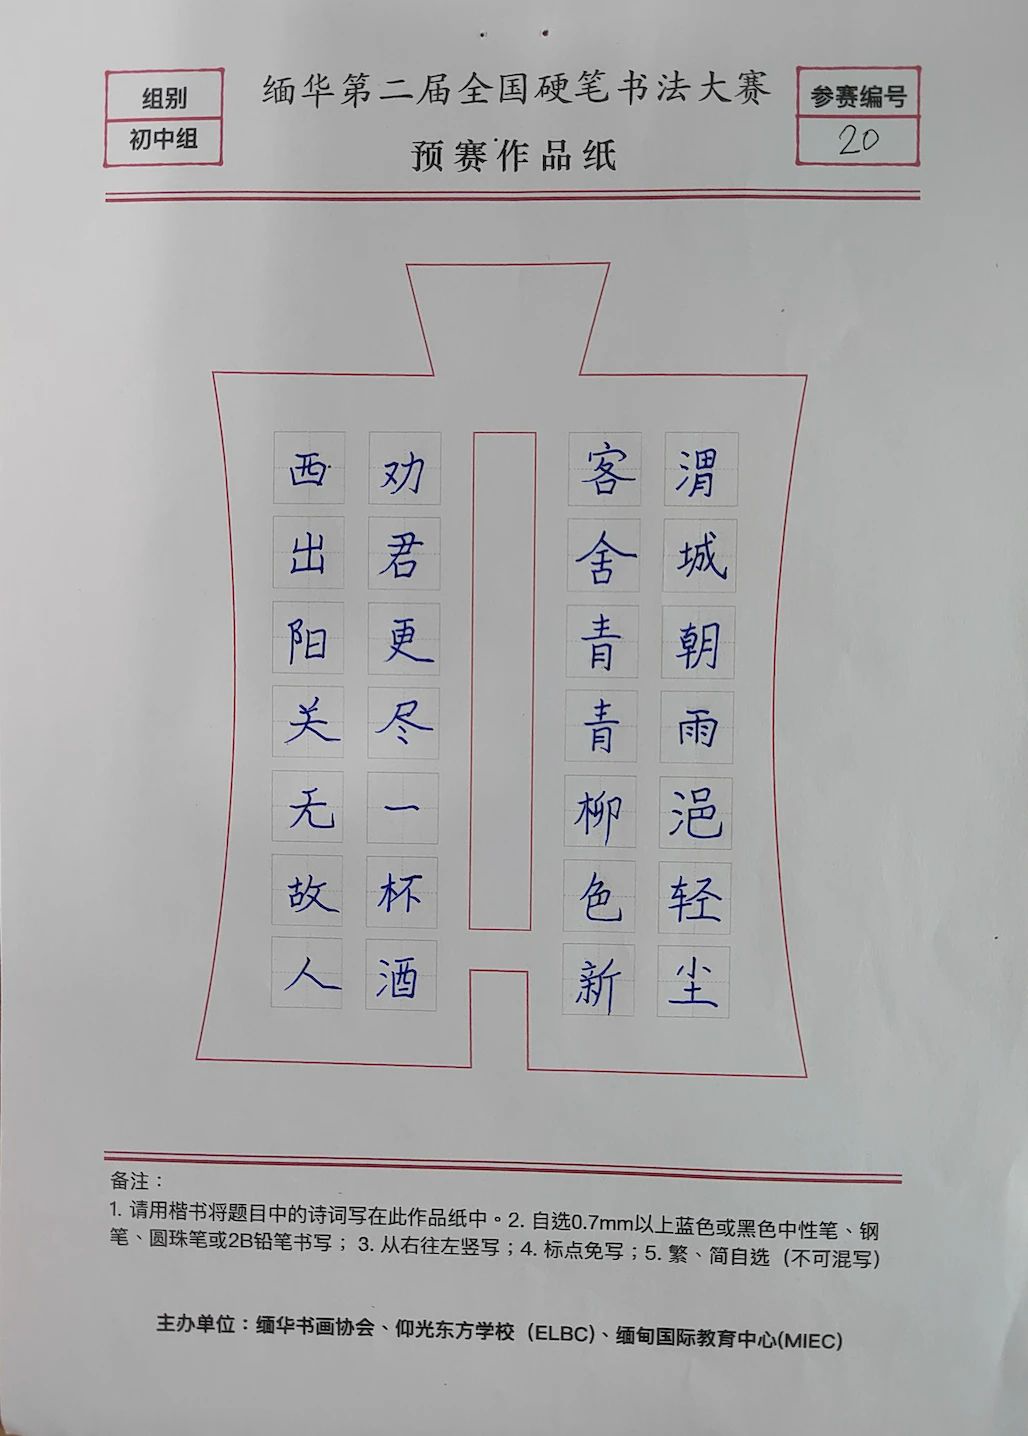 缅华第二届全国硬笔书法大赛
预赛作品纸
组别
初中组
参赛编号
20
渭城朝雨浥轻尘
客舍青青柳色新
劝君更尽一杯酒
西出阳关无故人
备注：
1. 请用楷书将题目中的诗词写在此作品纸中。2. 自选0.7mm以上蓝色或黑色中性笔、钢
笔、圆珠笔或2B铅笔书写；3. 从右往左竖写；4. 标点免写；5. 繁、简自选（不可混写）
主办单位：缅华书画协会、仰光东方学校（ELBC)、缅甸国际教育中心(MIEC）